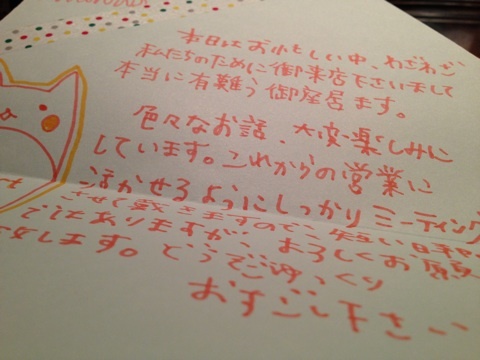 本日はお忙しい中、わざわざ
私たちのために御来店下さいまして
本当に有難う御座居ます。
色々なお話、大変楽しみに
しています。これからの営業に
活かせるようにしっかりミーティング
させて頂きますので、短い時間
ではありますが、よろしくお願
致します。どうぞごゆっくり
おすごし下さい